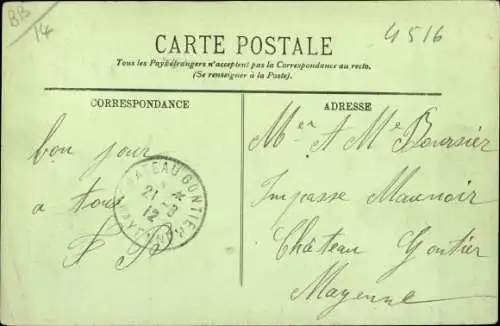 BB
14
4516
CARTE POSTALE
Tous les Pays étrangers n'acceptent pas la Correspondance au recto.
(Se renseigner à la Poste).
CORRESPONDANCE
ADRESSE
bon jour
a tous
CHATEAU GONTIER
21 -3
12
MAYENNE
Mer A Me Boursier
Impasse Maunoir
Château Gontier
Mayenne